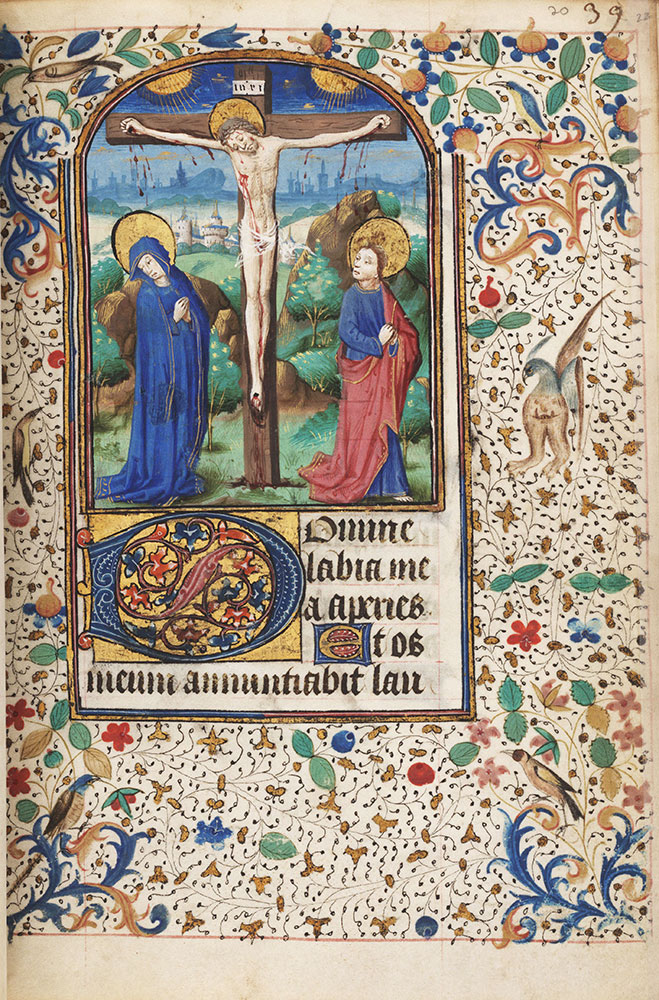 20 39 22
INRI
Domine
labia me
a aperies
Et os
meum annuntiabit lau